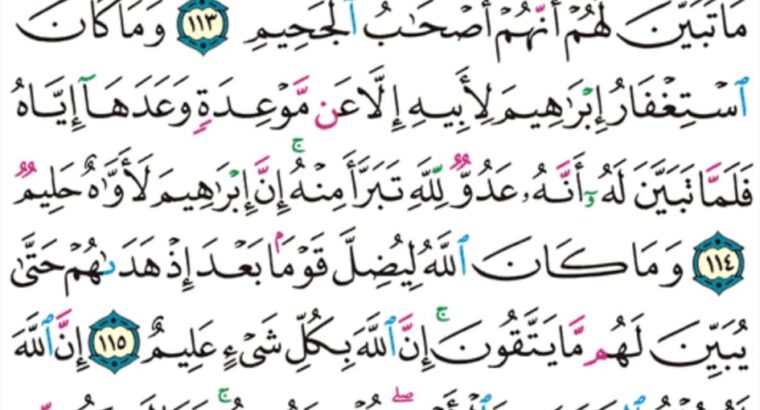 مَا تَبَيَّنَ لَهُمۡ أَنَّهُمۡ أَصۡحَٰبُ ٱلۡجَحِيمِ ١١٣ وَمَا كَانَ
ٱسۡتِغۡفَارُ إِبۡرَٰهِيمَ لِأَبِيهِ إِلَّا عَن مَّوۡعِدَةٖ وَعَدَهَآ إِيَّاهُ
فَلَمَّا تَبَيَّنَ لَهُۥٓ أَنَّهُۥ عَدُوّٞ لِّلَّهِ تَبَرَّأَ مِنۡهُۚ إِنَّ إِبۡرَٰهِيمَ لَأَوَّٰهٌ حَلِيمٞ
١١٤ وَمَا كَانَ ٱللَّهُ لِيُضِلَّ قَوۡمَۢا بَعۡدَ إِذۡ هَدَىٰهُمۡ حَتَّىٰ
يُبَيِّنَ لَهُم مَّا يَتَّقُونَۚ إِنَّ ٱللَّهَ بِكُلِّ شَيۡءٍ عَلِيمٌ ١١٥ إِنَّ ٱللَّهَ